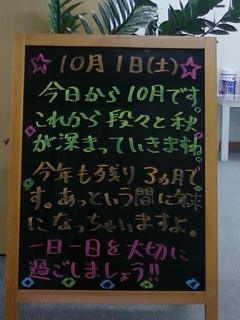 10月1日(土)
今日から10月です。
これから段々と秋
が深まっていきますね。
今年も残り3ヵ月で
す。あっという間に年末
になっちゃいますよ。
一日一日を大切に
過ごしましょう!!